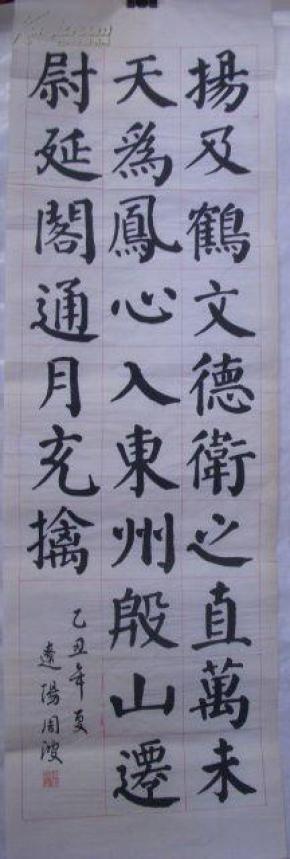 揚及鶴文德衛之直萬未
天為鳳心入東州殷山遷
尉延閣通月充擒
乙丑年夏
遼陽周波